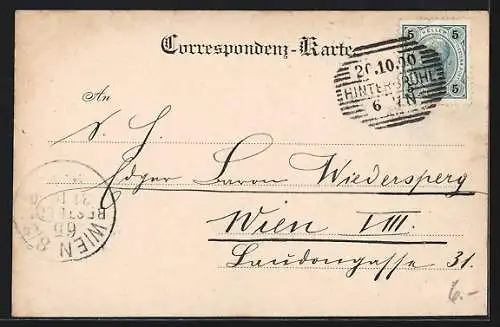 Correspondenz-Karte
5 HELLER 5
5 5
20.10.00
HINTERBRÜHL
6 N
An
S. H.
Edgar Baron Wiedersperg
Wien VIII.
Laudongasse 31.
WIEN 8
BESTELLT
6.-